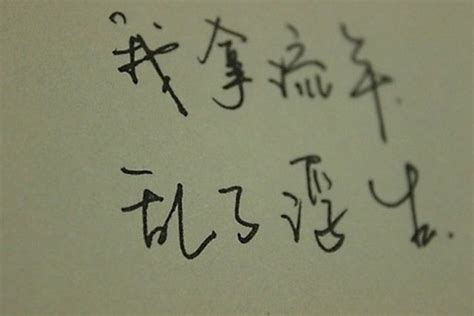 我拿流年.
乱了浮生.